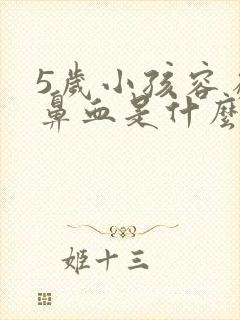 5歲小孩容
鼻血是什麼
姬十三